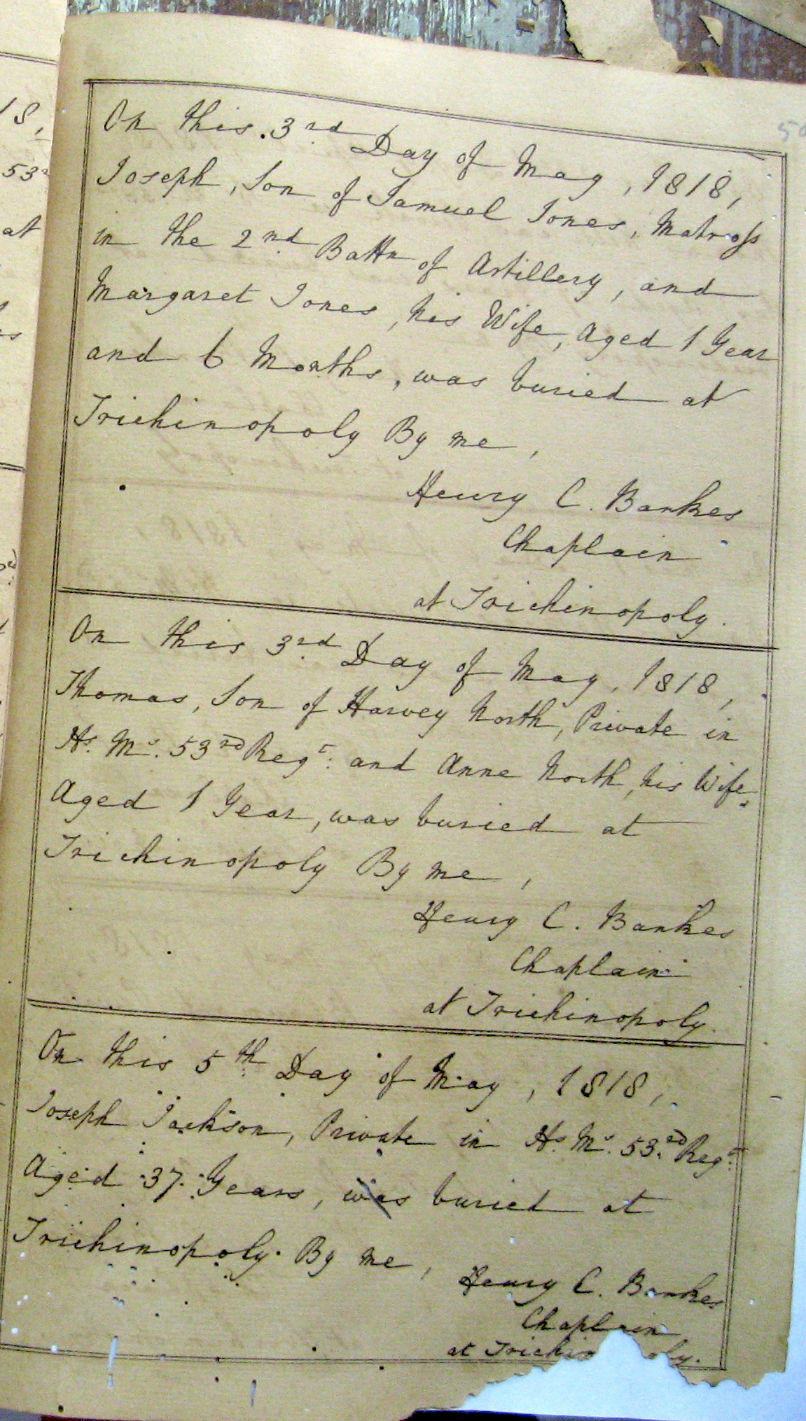 18,
53
at
50
On this 3rd Day of May, 1818,
Joseph, Son of Samuel Jones, Matross
in the 2nd Battn of Artillery, and
Margaret Jones, his Wife, Aged 1 Year
and 6 Months, was buried at
Trichinopoly By me,
Henry C. Bankes
Chaplain
at Trichinopoly.
On this 3rd Day of May, 1818,
Thomas, Son of Harvey North, Private in
Hs. Ms. 53rd Regt. and Anne North, his Wife,
Aged 1 Year, was buried at
Trichinopoly By me,
Henry C. Bankes
Chaplain
at Trichinopoly.
On this 5th Day of May, 1818,
Joseph Jackson, Private in Hs. Ms. 53rd Regt.
Aged 37 Years, was buried at
Trichinopoly. By me,
Henry C. Bankes
Chaplain
at Trichinopoly.